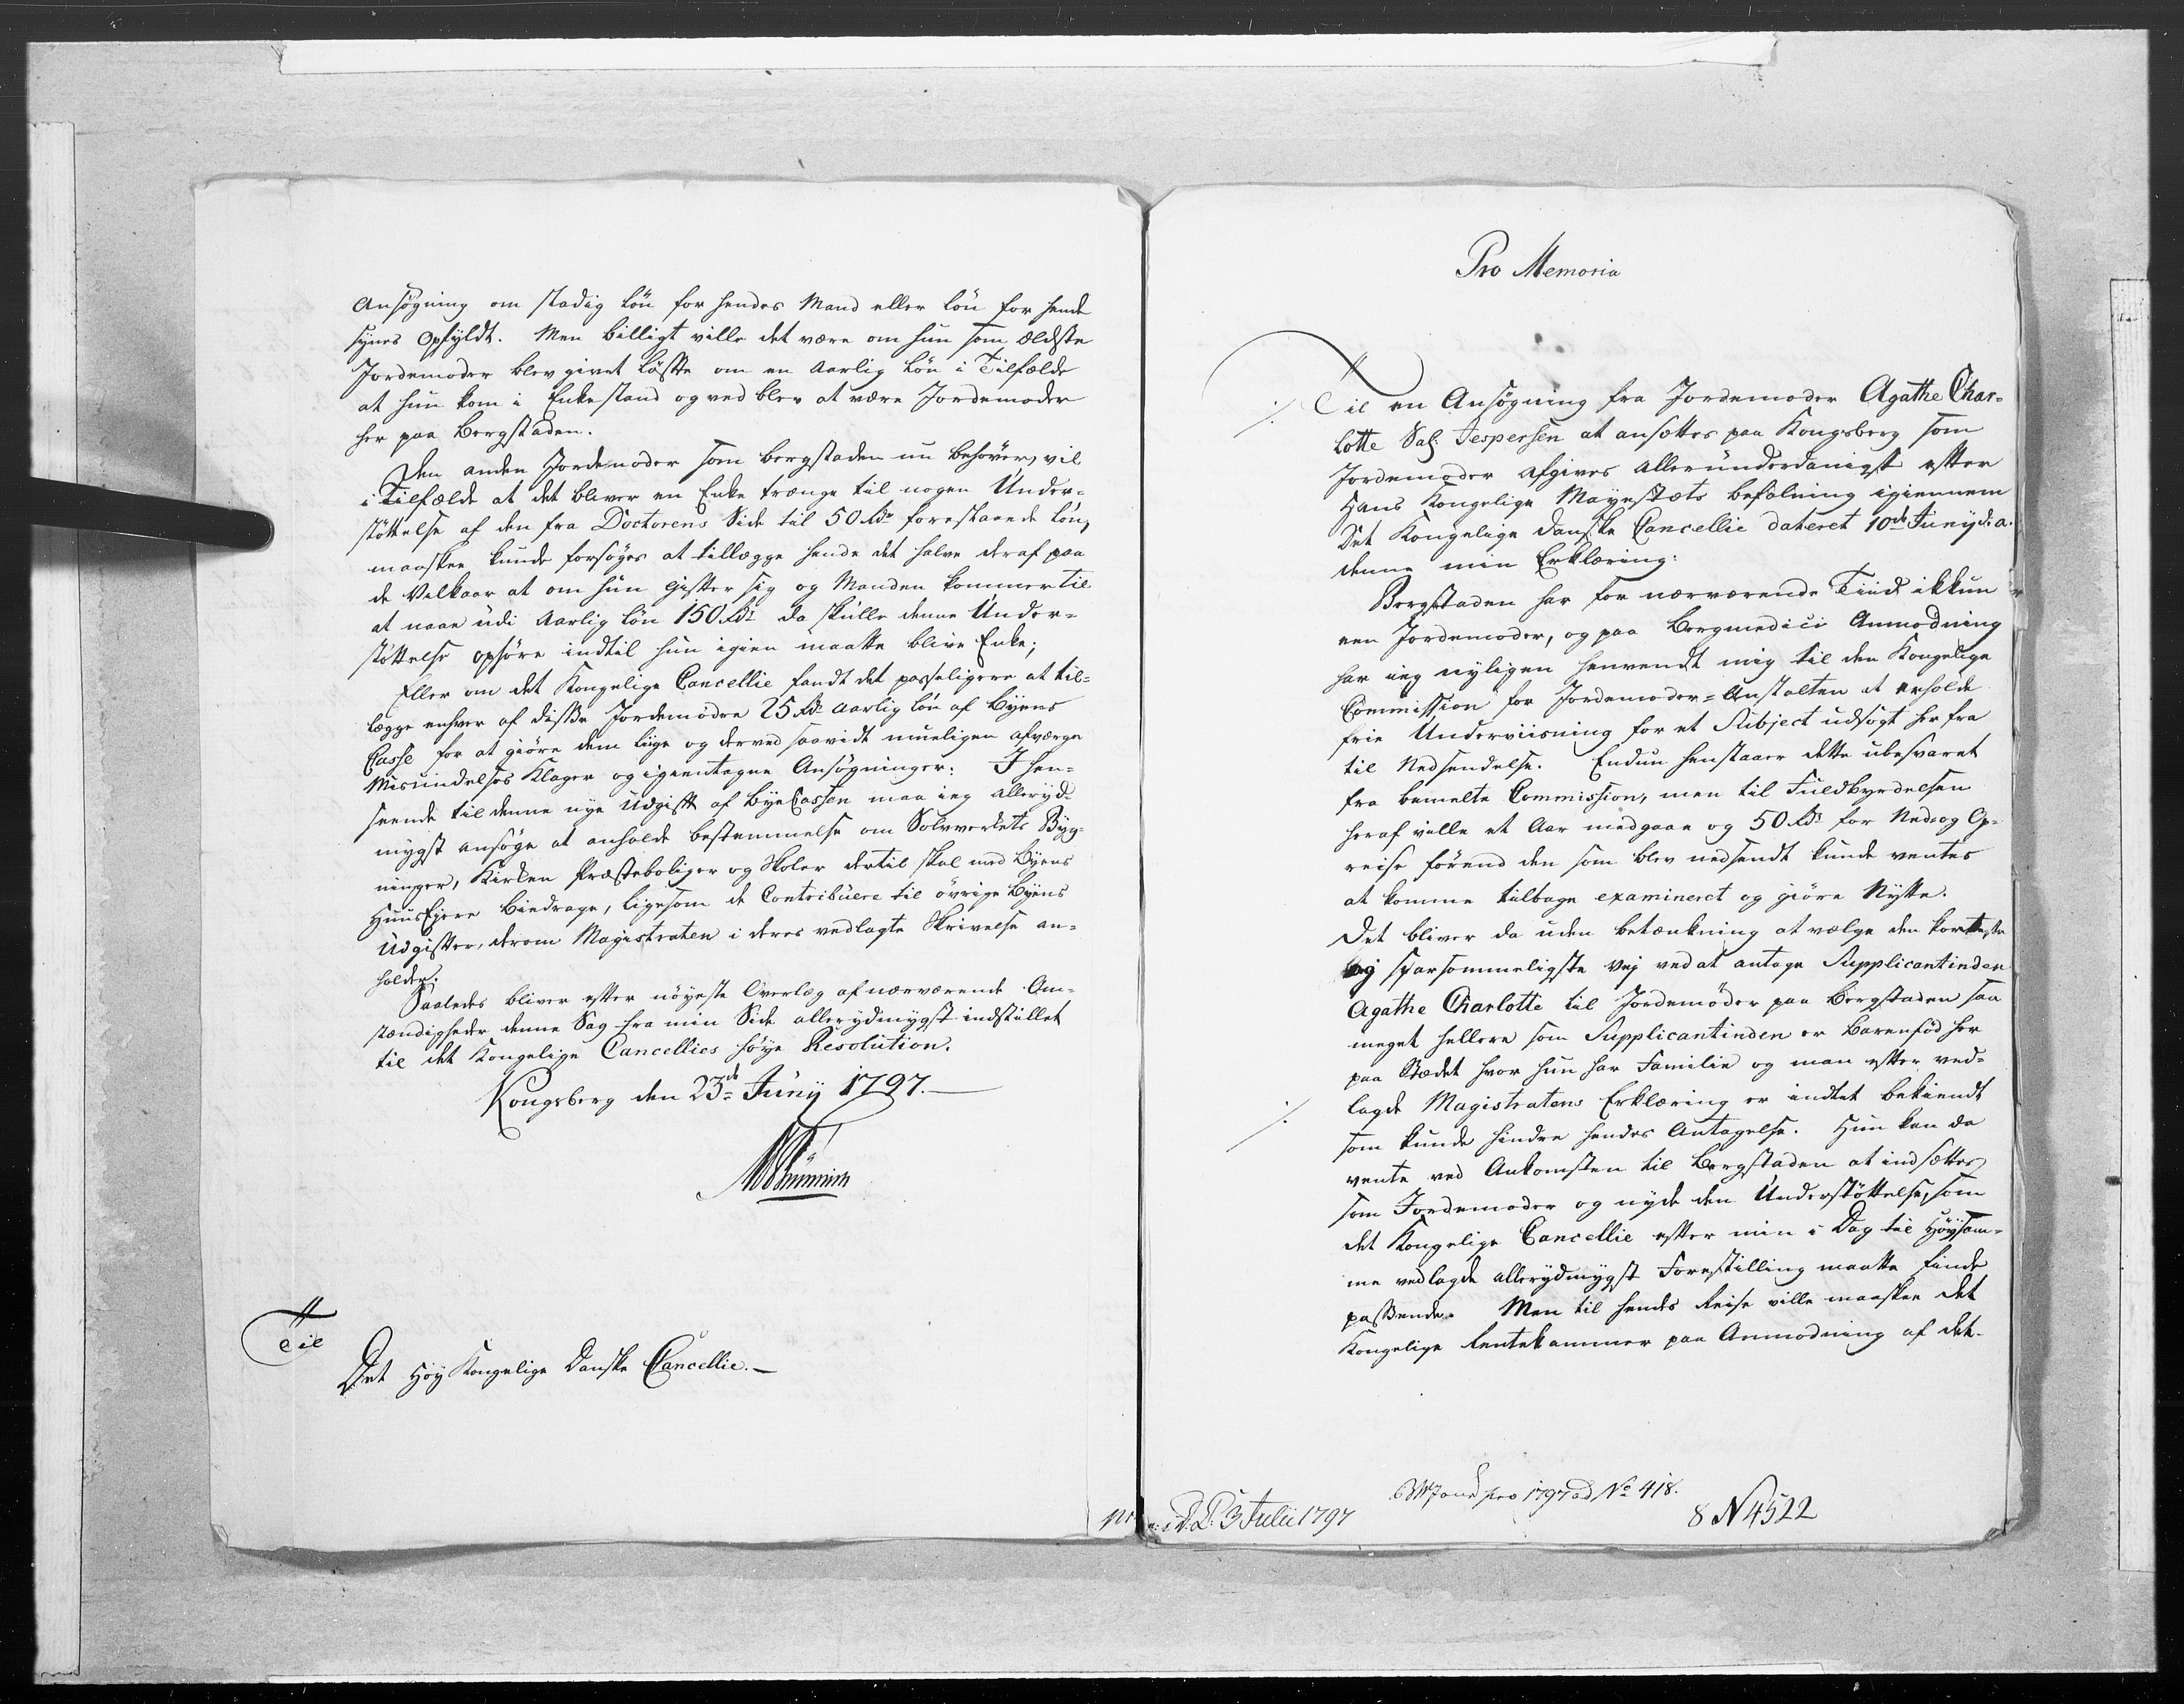 Ansøgning om stadig Løn for hendes Mand eller Løn for hende
synes Opfyldt. Men billigt ville det være om hun som ældste
Jordemoder blev givet Løfte om en Aarlig Løn i Tilfælde
at hun kom i Enkestand og ved blev at være Jordemoder
her paa Bergstaden.
Den anden Jordemoder som Bergstaden nu behøver, vil
i Tilfælde at det bliver en Enke trænge til nogen Under=
støttelse af den fra Doctorens Side til 50 Rdr forestaaende Løn,
maaskee kunde forsøges at tillægge hende det halve deraf paa
de Velkaar at om hun gifter sig og Manden kommer til
at naae udi Aarlig Løn 150 Rdr da skulle denne Under=
støttelse ophøre indtil hun igien maatte blive Enke;
Eller om det Kongelige Cancellie fandt det passeligere at til=
lægge enhver af disse Jordemødre 25 Rdr Aarlig Løn af Byens
Casse for at giøre dem liige og derved saavidt mueligen afværge
Misundelses Klager og igientagne Ansøgninger: I hen=
seende til denne nye Udgift af ByeCassen maa ieg allerÿd=
mygst ansøge at anholde bestemmelse om Sølvverkets Byg=
ninger, Kirken Præsteboliger og Skoler dertil skal med Byens
HuusEjere biedrage, ligesom de Contribuere til øvrige Byens
Udgifter, derom Magistraten i deres vedlagte Skrivelse an=
holder.
Saaledes bliver efter nøyeste Overlæg af nærværende Om=
stændigheder denne Sag fra min Side allerÿdmygst indstillet
til det Kongelige Cancellies høye Resolution.
Kongsberg den 23de Junÿ 1797.
Til
Det Høy Kongelige Danske Cancellie.
Pro Memoria
Til en Ansøgning fra Jordemoder Agathe Char=
lotte Sal. Jespersen at ansættes paa Kongsberg som
Jordemoder afgives allerunderdanigst efter
Hans Kongelige Mayestæts befalning igiennem
Det Kongelige Danske Cancellie dateret 10de Junÿ d. a.
denne min Erklæring:
Bergstaden har for nærværende Tiid ikkun
een Jordemoder, og paa Bergmedici Anmodning
har ieg nyligen henvendt mig til den Kongelige
Commission for Jordemoder=Anstalten at erholde
frie Underviisning for et Subject udsøgt her fra
til Nedsendelse. Endnu henstaaer dette ubesvaret
fra bemelte Commission, men til Fuldbyrdelsen
heraf ville et Aar medgaae og 50 Rdr for Ned og Op=
reise førend den som blev nedsendt kunde ventes
at komme tilbage examineret og giøre Nytte.
Det bliver da uden betænkning at vælge den korteste
og sparsommeligste Vej ved at antage Supplicantinden
Agathe Charlotte til Jordemoder paa Bergstaden saa
meget hellere som Supplicantinden er barenfød her
paa Stædet hvor hun har Familie og man efter ved=
lagde Magistratens Erklæring er indtet bekiendt
som kunde hindre hendes Antagelse. Hun kan da
vente ved Ankomsten til Bergstaden at indsættes
som Jordemoder og nyde den Understøttelse, som
det Kongelige Cancellie efter min i Dag til Høÿsam=
me vedlagde allerÿdmygst Forestilling maatte finde
passende. Men til hendes Reise ville maaskee det
Kongelige Rentekammer paa Anmodning af det
3 Julii 1797
pro 1797 ad No 418.
8 N 4522